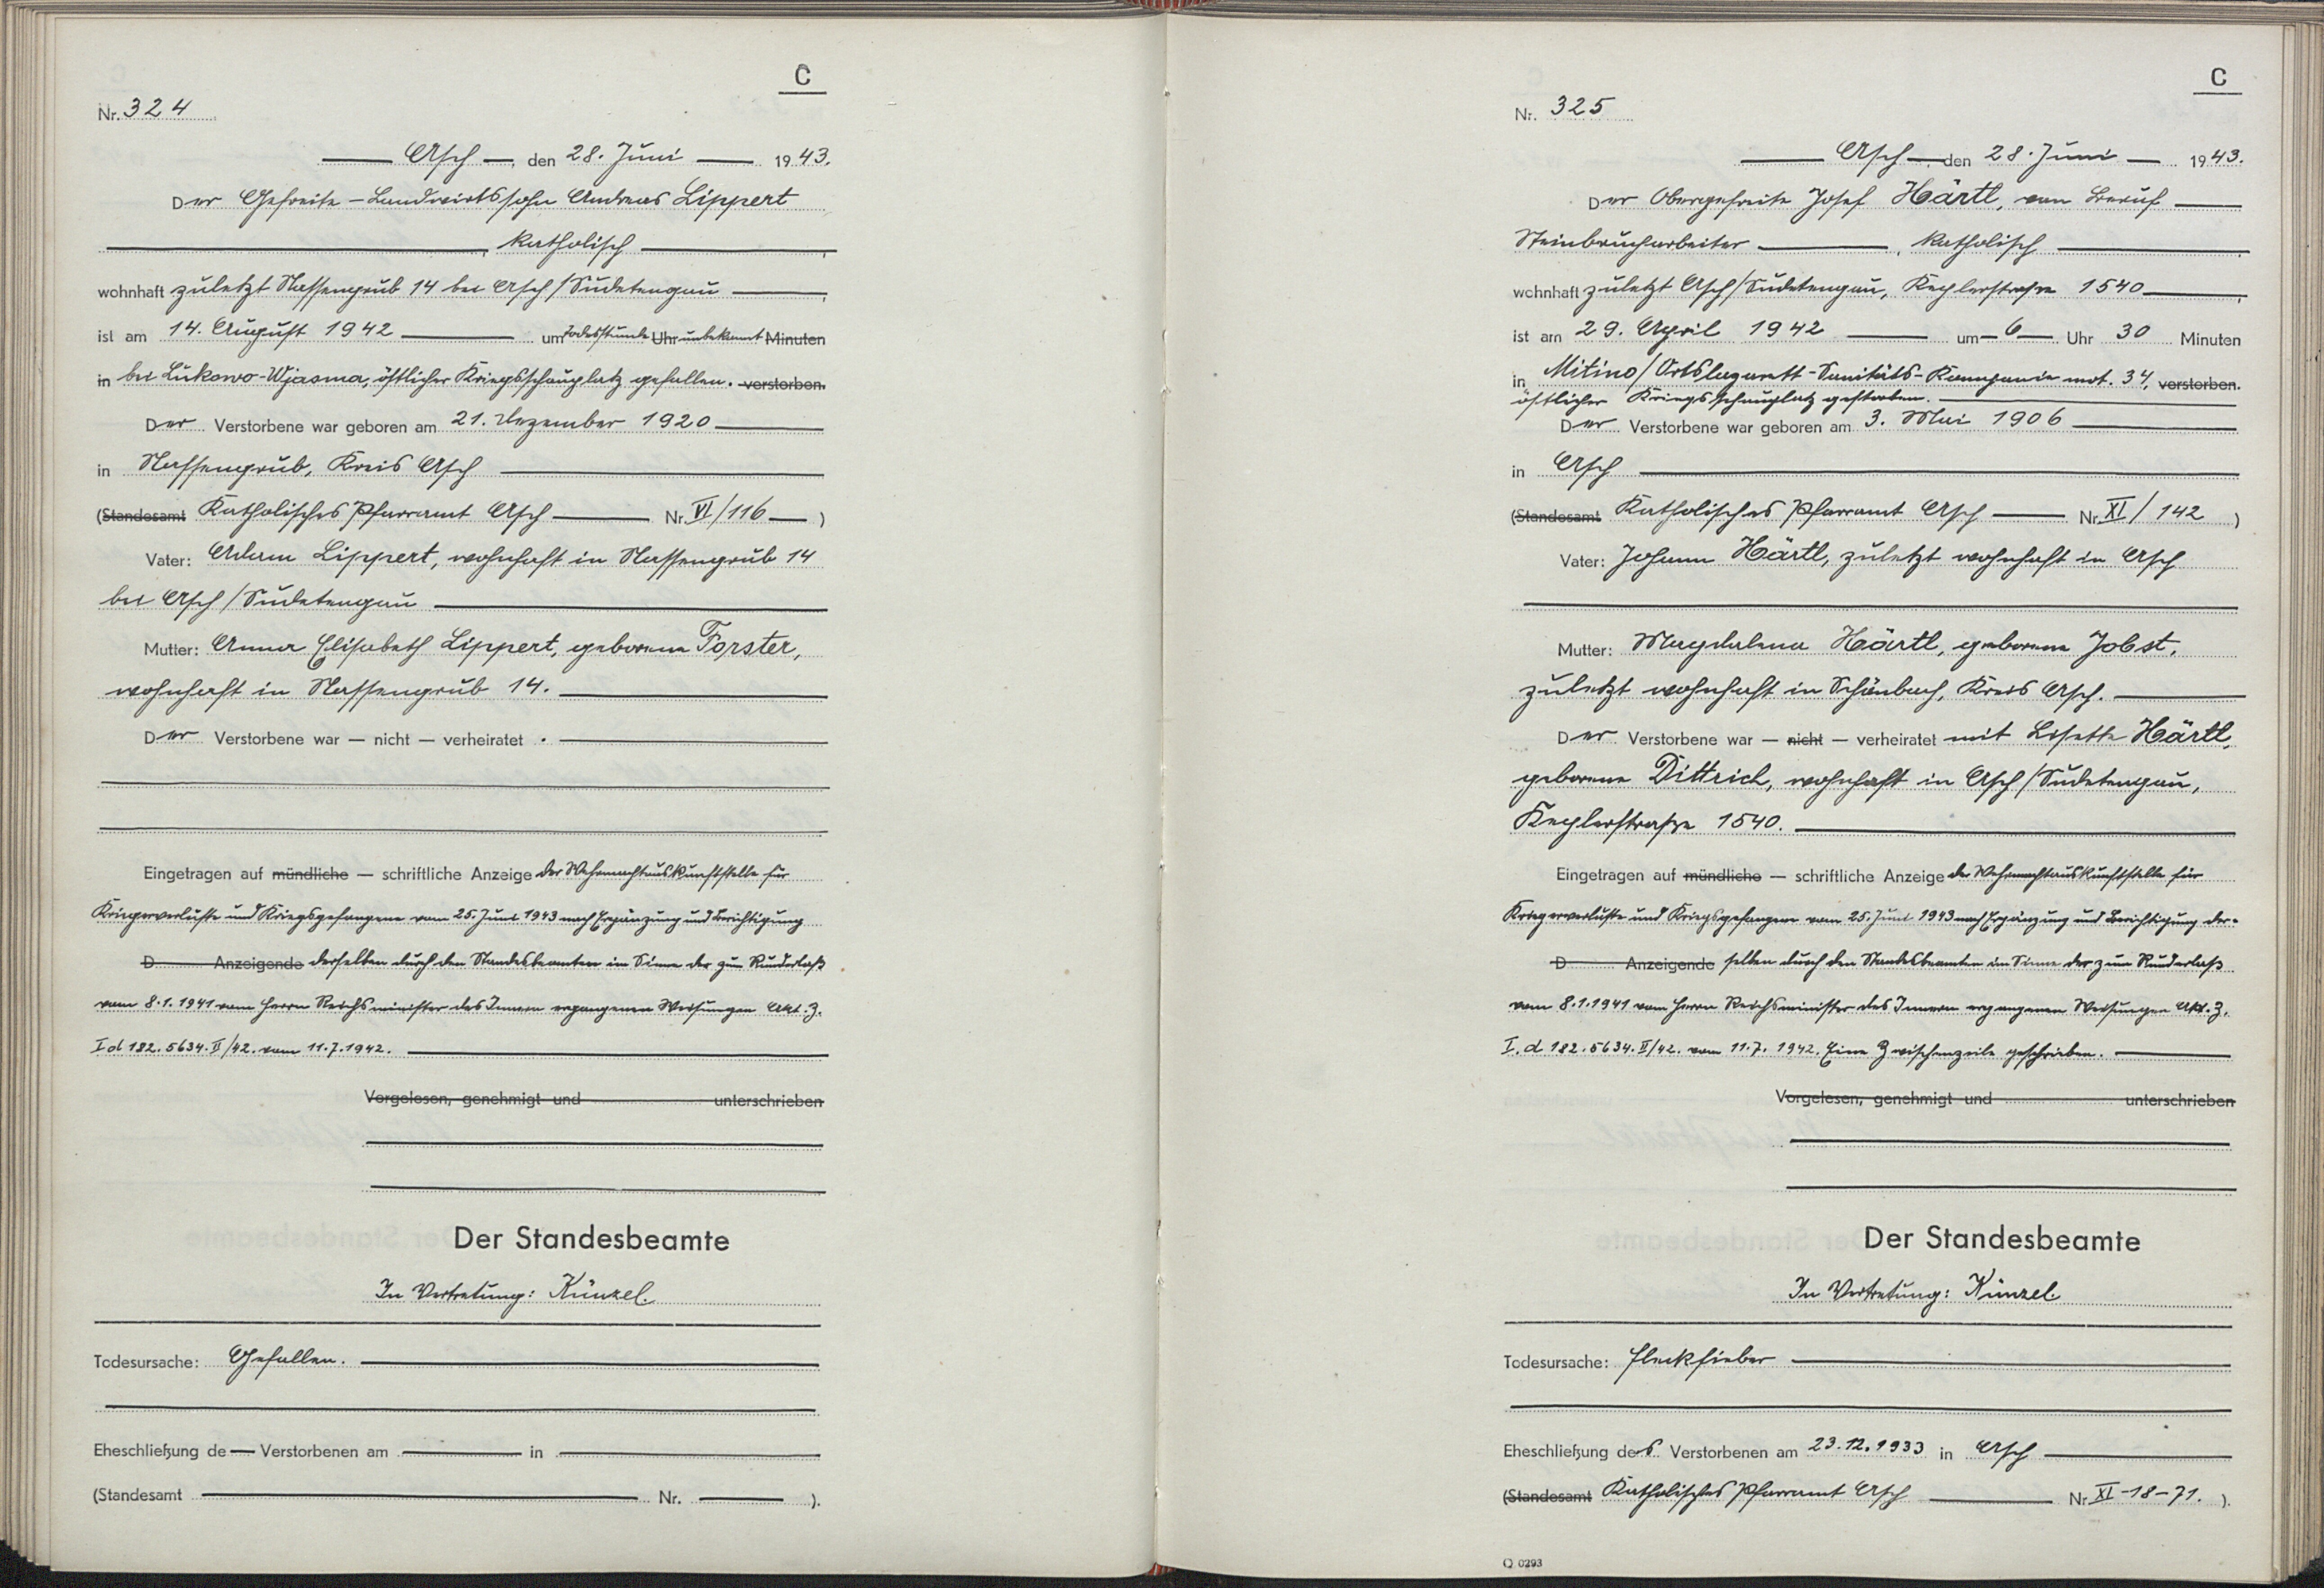 C
Nr. 324
Asch, den 28. Juni 1943.
Der Gefreite - Landwirtssohn Andreas Lippert
, katholisch ,
wohnhaft zuletzt Nassengrub 14 bei Asch/Sudetengau ,
ist am 14. August 1942 um Todesstunde Uhr unbekannt Minuten
in bei Lukowo-Wjasma, östlicher Kriegsschauplatz gefallen. verstorben.
Der Verstorbene war geboren am 21. Dezember 1920
in Nassengrub, Kreis Asch
(Standesamt Katholisches Pfarramt Asch Nr. VI/116 )
Vater: Adam Lippert, wohnhaft in Nassengrub 14
bei Asch/Sudetengau
Mutter: Anna Elisabeth Lippert, geborene Forster,
wohnhaft in Nassengrub 14.
Der Verstorbene war — nicht — verheiratet .
Eingetragen auf mündliche — schriftliche Anzeige der Wehrmachtauskunftstelle für
Kriegerverluste und Kriegsgefangene vom 25. Juni 1943 nach Ergänzung und Berichtigung
D Anzeigende derselben durch den Standesbeamten im Sinne der zum Runderlaß
vom 8.1.1941 vom Herrn Reichsminister des Innern ergangenen Weisungen Akt. Z.
I d 182. 5634. II/42. vom 11.7.1942.
Vorgelesen, genehmigt und unterschrieben
Der Standesbeamte
In Vertretung: Künzel.
Todesursache: Gefallen.
Eheschließung de Verstorbenen am in
(Standesamt Nr. ).
C
Nr. 325
Asch, den 28. Juni 1943.
Der Obergefreite Josef Härtl, von Beruf
Steinbrucharbeiter , katholisch
wohnhaft zuletzt Asch/Sudetengau, Keplerstrasse 1540 ,
ist am 29. April 1942 um 6 Uhr 30 Minuten
in Mitino/Ortslazarett-Sanitäts-Kompanie mot. 34, verstorben.
östlicher Kriegsschauplatz gestorben.
Der Verstorbene war geboren am 3. Mai 1906
in Asch
(Standesamt Katholisches Pfarramt Asch Nr. XI/142 )
Vater: Johann Härtl, zuletzt wohnhaft in Asch
Mutter: Magdalena Härtl, geborene Jobst,
zuletzt wohnhaft in Schönbach, Kreis Asch.
Der Verstorbene war — nicht — verheiratet mit Lisette Härtl,
geborene Dittrich, wohnhaft in Asch/Sudetengau,
Keplerstrasse 1540.
Eingetragen auf mündliche — schriftliche Anzeige der Wehrmachtauskunftstelle für
Kriegerverluste und Kriegsgefangene vom 25. Juni 1943 nach Ergänzung und Berichtigung der-
D Anzeigende selben durch den Standesbeamten im Sinne der zum Runderlaß
vom 8.1.1941 vom Herrn Reichsminister des Innern ergangenen Weisungen Akt. Z.
I. d 182. 5634. II/42. vom 11.7.1942. Eine Zwischenzeile geschrieben.
Vorgelesen, genehmigt und unterschrieben
Der Standesbeamte
In Vertretung: Künzel.
Todesursache: Fleckfieber
Eheschließung des Verstorbenen am 23.12.1933 in Asch
(Standesamt Katholisches Pfarramt Asch Nr. XI-18-71. ).
Q 0293